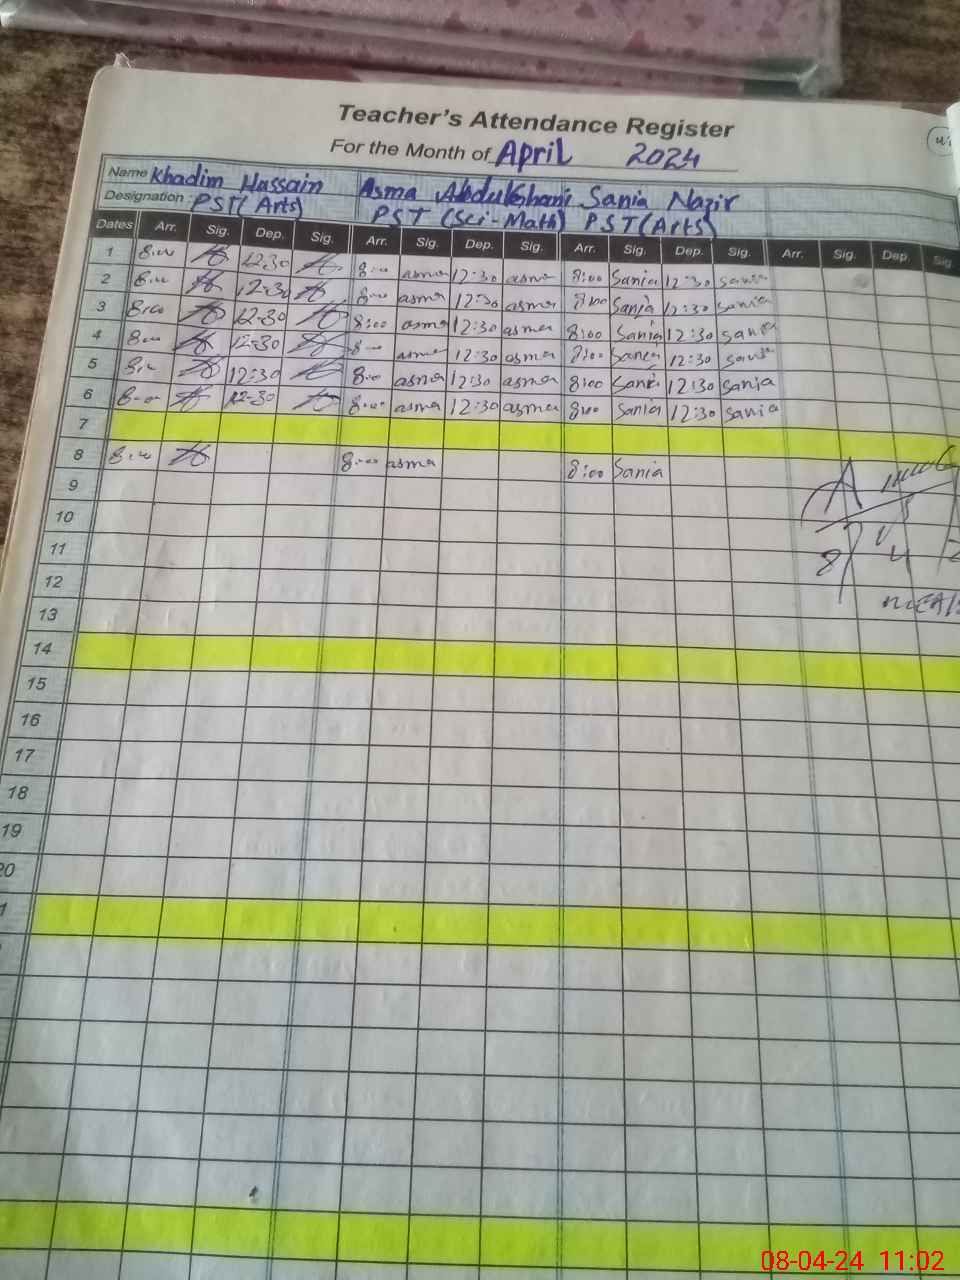 Teacher's Attendance Register
For the Month of April 2024
Name Khadim Hassain Asma Abdulghani Sania Nazir
Designation : PST (Arts) PST (Sci-Math) PST (Arts)
Dates Arr. Sig. Dep. Sig. Arr. Sig. Dep. Sig. Arr. Sig. Dep. Sig. Arr. Sig. Dep. Sig
1 8:00 12:30 8:00 asma 12:30 asma 8:00 Sania 12:30 sania
2 8:00 12-30 8:00 asma 12:30 asma 8:00 Sania 12:30 sania
3 8:00 12-30 8:00 asma 12:30 asma 8:00 Sania 12:30 sania
4 8:00 12-30 8:00 asma 12:30 asma 8:00 Sania 12:30 sania
5 8:00 12:30 8:00 asma 12:30 asma 8:00 Sania 12:30 sania
6 8:00 12-30 8:00 asma 12:30 asma 8:00 Sania 12:30 sania
7
8 8:00 8:00 asma 8:00 Sania
9
10
11
12
13
14
15
16
17
18
19
20
08-04-24 11:02